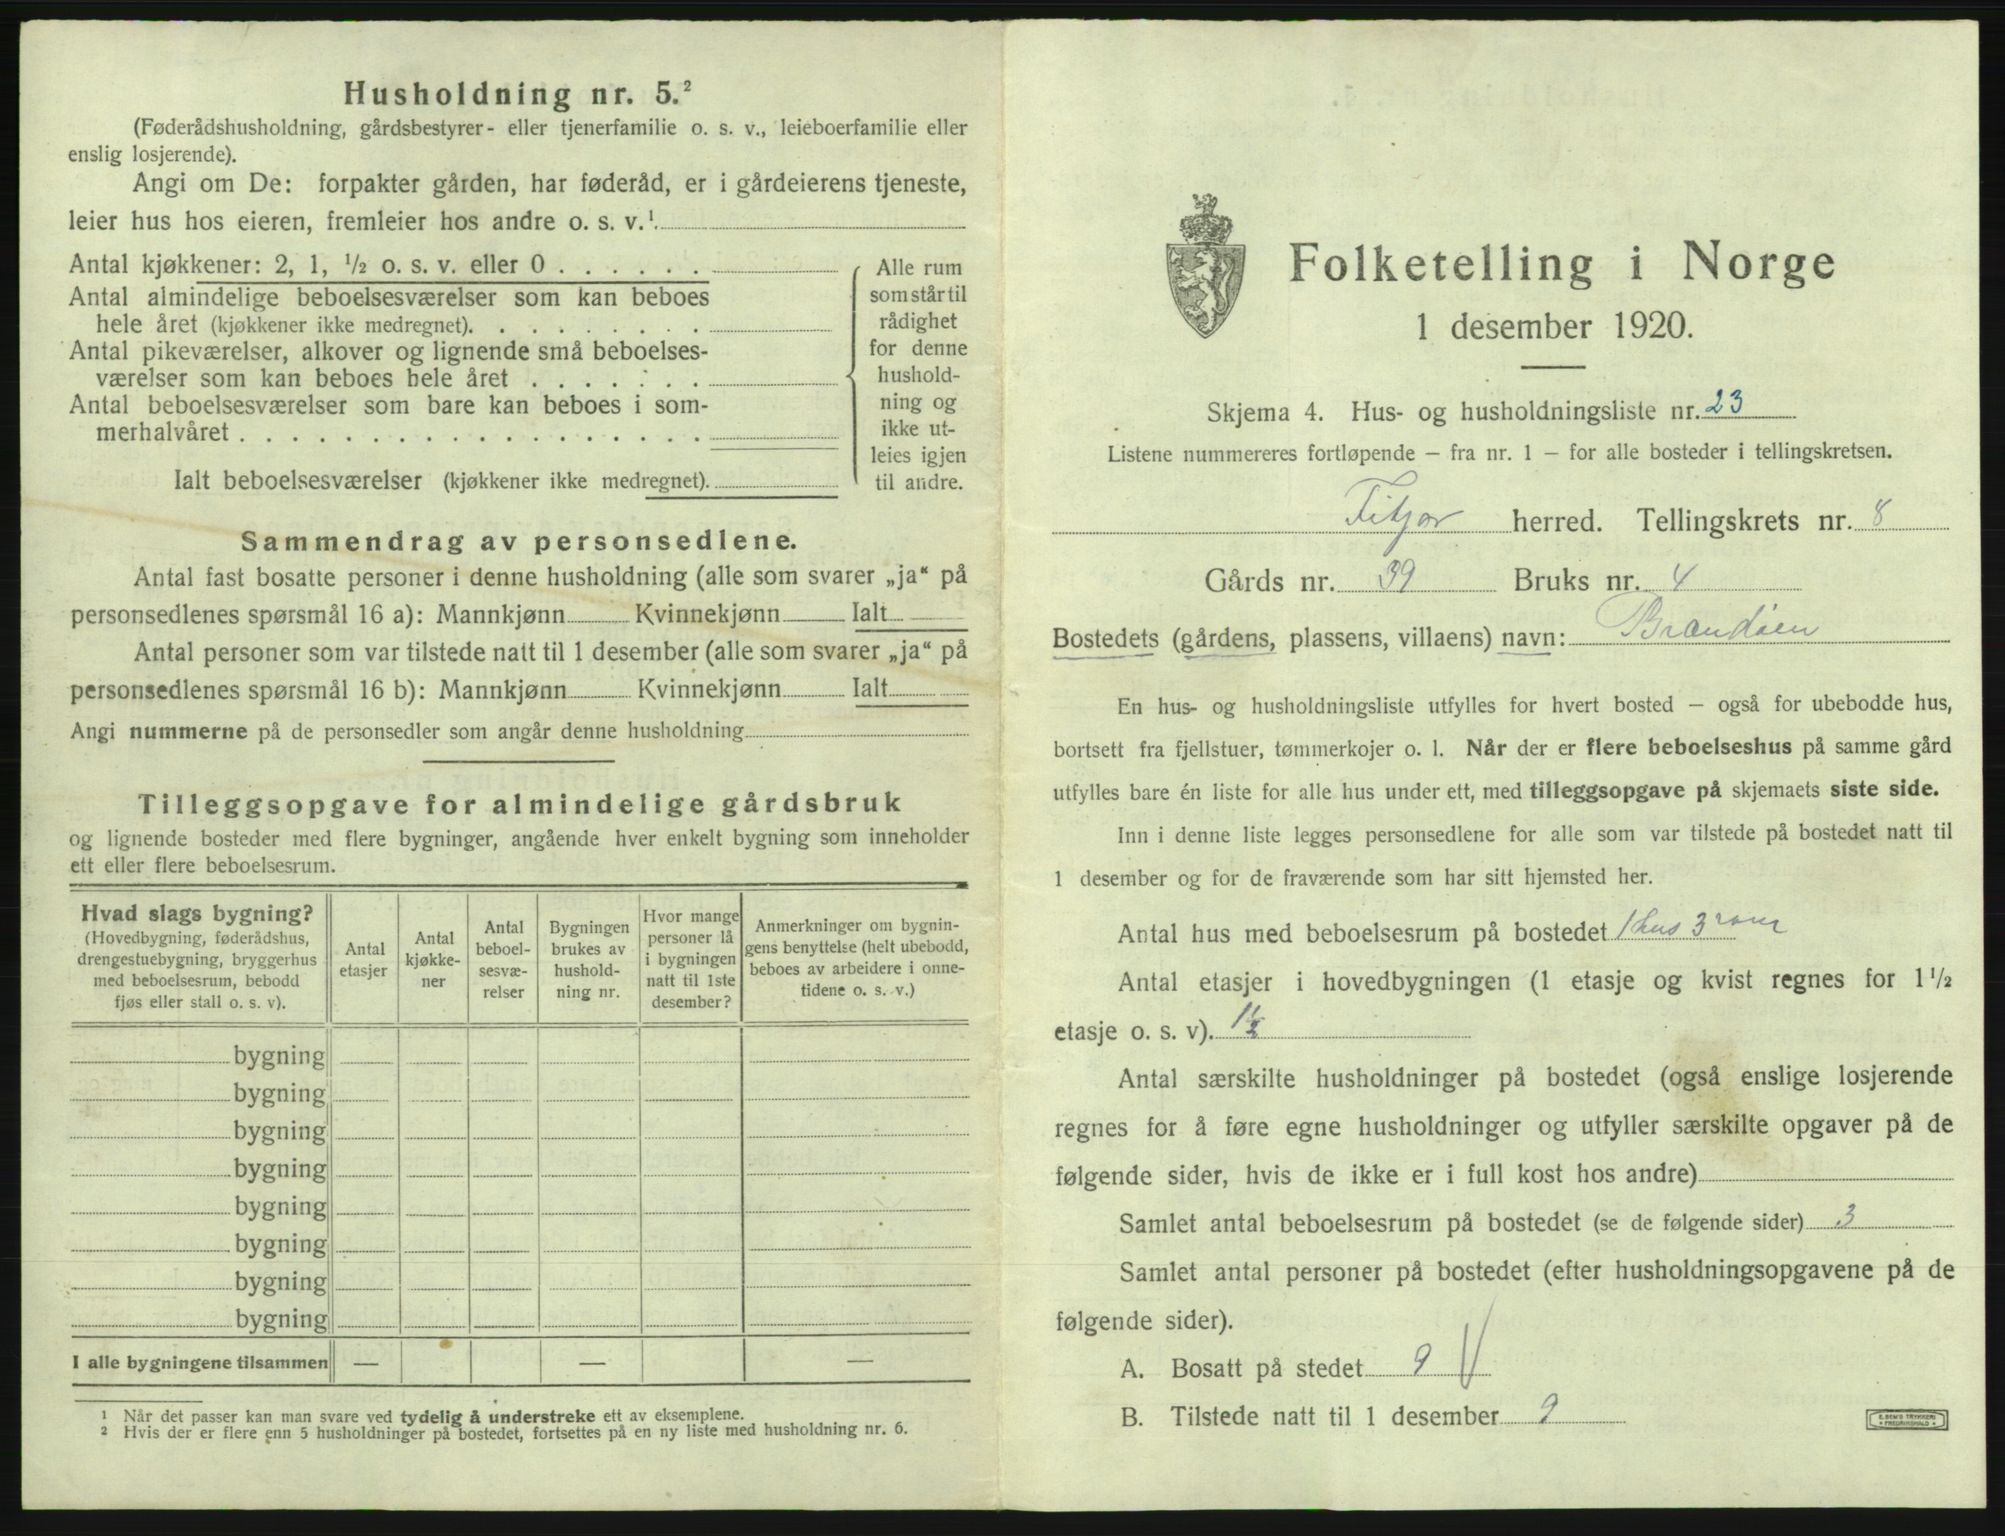 Husholdning nr. 5.²
(Føderådshusholdning, gårdsbestyrer- eller tjenerfamilie o. s. v., leieboerfamilie eller
enslig losjerende).
Angi om De: forpakter gården, har føderåd, er i gårdeierens tjeneste,
leier hus hos eieren, fremleier hos andre o. s. v.¹
Antal kjøkkener: 2, 1, ½ o. s. v. eller 0
Antal almindelige beboelsesværelser som kan beboes
hele året (kjøkkener ikke medregnet).
Antal pikeværelser, alkover og lignende små beboelses-
værelser som kan beboes hele året
Antal beboelsesværelser som bare kan beboes i som-
merhalvåret
Ialt beboelsesværelser (kjøkkener ikke medregnet).
Alle rum
som står til
rådighet
for denne
hushold-
ning og
ikke ut-
leies igjen
til andre.
Sammendrag av personsedlene.
Antal fast bosatte personer i denne husholdning (alle som svarer „ja“ på
personsedlenes spørsmål 16 a): Mannkjønn Kvinnekjønn Ialt
Antal personer som var tilstede natt til 1 desember (alle som svarer „ja“ på
personsedlenes spørsmål 16 b): Mannkjønn Kvinnekjønn Ialt
Angi nummerne på de personsedler som angår denne husholdning
Tilleggsopgave for almindelige gårdsbruk
og lignende bosteder med flere bygninger, angående hver enkelt bygning som inneholder
ett eller flere beboelsesrum.
Hvad slags bygning?
(Hovedbygning, føderådshus,
drengestuebygning, bryggerhus
med beboelsesrum, bebodd
fjøs eller stall o. s. v).
Antal
etasjer
Antal
kjøkke-
ner
Antal
beboel-
sesvæ-
relser
Bygningen
brukes av
hushold-
ning nr.
Hvor mange
personer lå
i bygningen
natt til 1ste
desember?
Anmerkninger om bygnin-
gens benyttelse (helt ubebodd,
beboes av arbeidere i onne-
tidene o. s. v.)
bygning
bygning
bygning
bygning
bygning
bygning
bygning
bygning
I alle bygningene tilsammen — — —
¹ Når det passer kan man svare ved tydelig å understreke ett av eksemplene.
² Hvis der er flere enn 5 husholdninger på bostedet, fortsettes på en ny liste med husholdning nr. 6.
Folketelling i Norge
1 desember 1920.
Skjema 4. Hus- og husholdningsliste nr. 23
Listene nummereres fortløpende — fra nr. 1 — for alle bosteder i tellingskretsen.
Fitjar herred. Tellingskrets nr. 8
Gårds nr. 39 Bruks nr. 4
Bostedets (gårdens, plassens, villaens) navn: Brandøen
En hus- og husholdningsliste utfylles for hvert bosted — også for ubebodde hus,
bortsett fra fjellstuer, tømmerkojer o. l. Når der er flere beboelseshus på samme gård
utfylles bare én liste for alle hus under ett, med tilleggsopgave på skjemaets siste side.
Inn i denne liste legges personsedlene for alle som var tilstede på bostedet natt til
1 desember og for de fraværende som har sitt hjemsted her.
Antal hus med beboelsesrum på bostedet 1 hus 3 rom
Antal etasjer i hovedbygningen (1 etasje og kvist regnes for 1½
etasje o. s. v). 1½
Antal særskilte husholdninger på bostedet (også enslige losjerende
regnes for å føre egne husholdninger og utfyller særskilte opgaver på de
følgende sider, hvis de ikke er i full kost hos andre)
Samlet antal beboelsesrum på bostedet (se de følgende sider) 3
Samlet antal personer på bostedet (efter husholdningsopgavene på de
følgende sider).
A. Bosatt på stedet 9
B. Tilstede natt til 1 desember 9